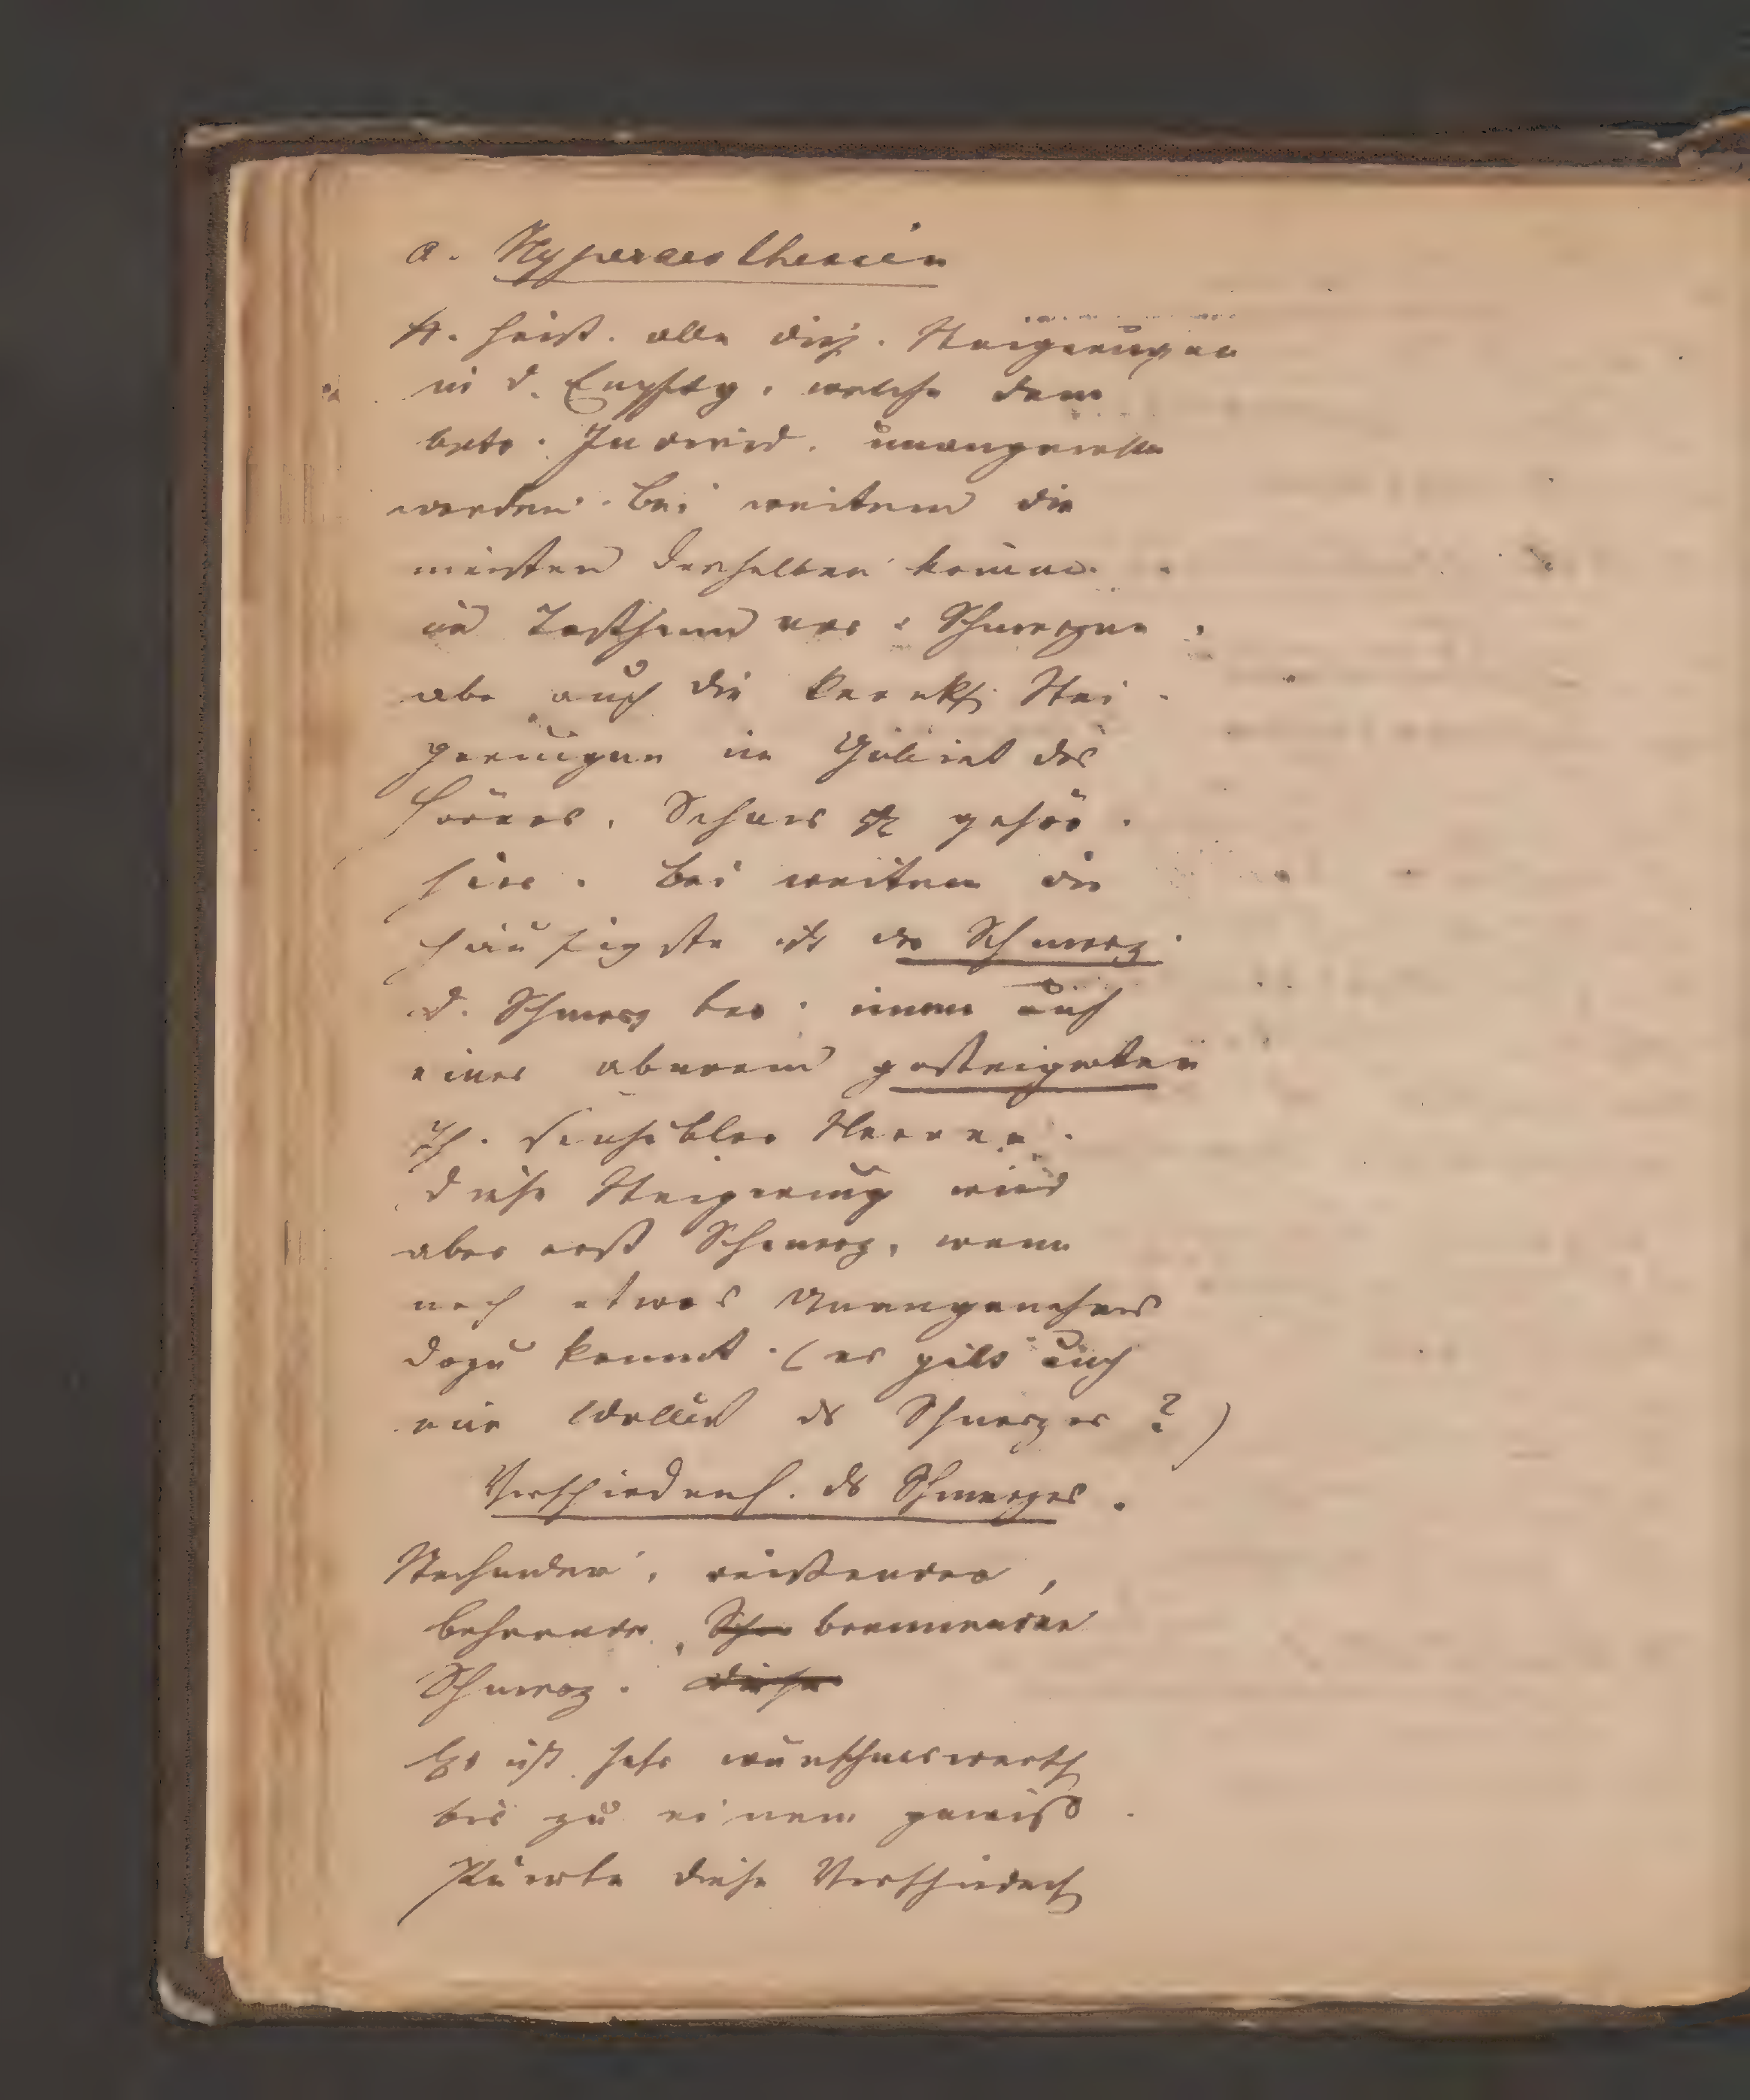 a. Hyperaesthesien
H. heiß. alle diej. Steigerungen
in d. Empfdg. welche dem
betr. Individ. unangenehm
werden. Bei weitem die
meisten derselben kommen
im Tastsinn vor: Schmerzen,
aber auch die krankh. Stei-
gerungen im Gebiet des
Hörens, Sehens etc gehör.
hier. Bei weitem die
häufigste ist der Schmerz.
D. Schmerz ber. immer auf
einer abnorm gesteigerten
Th. sensibler Nerven.
Diese Steigerung wird
aber erst Schmerz, wenn
noch etwas Unangenehmes
dazu kommt. (es gibt auch
eine Wollust des Schmerzes?)
Verschiedenh. des Schmerzes.
Stechender, reißender,
bohrender, brennender
Schmerz. Diese
Es ist sehr wünschenswerth
bis zu einem gewiss
Punkte diese Verschiedenh